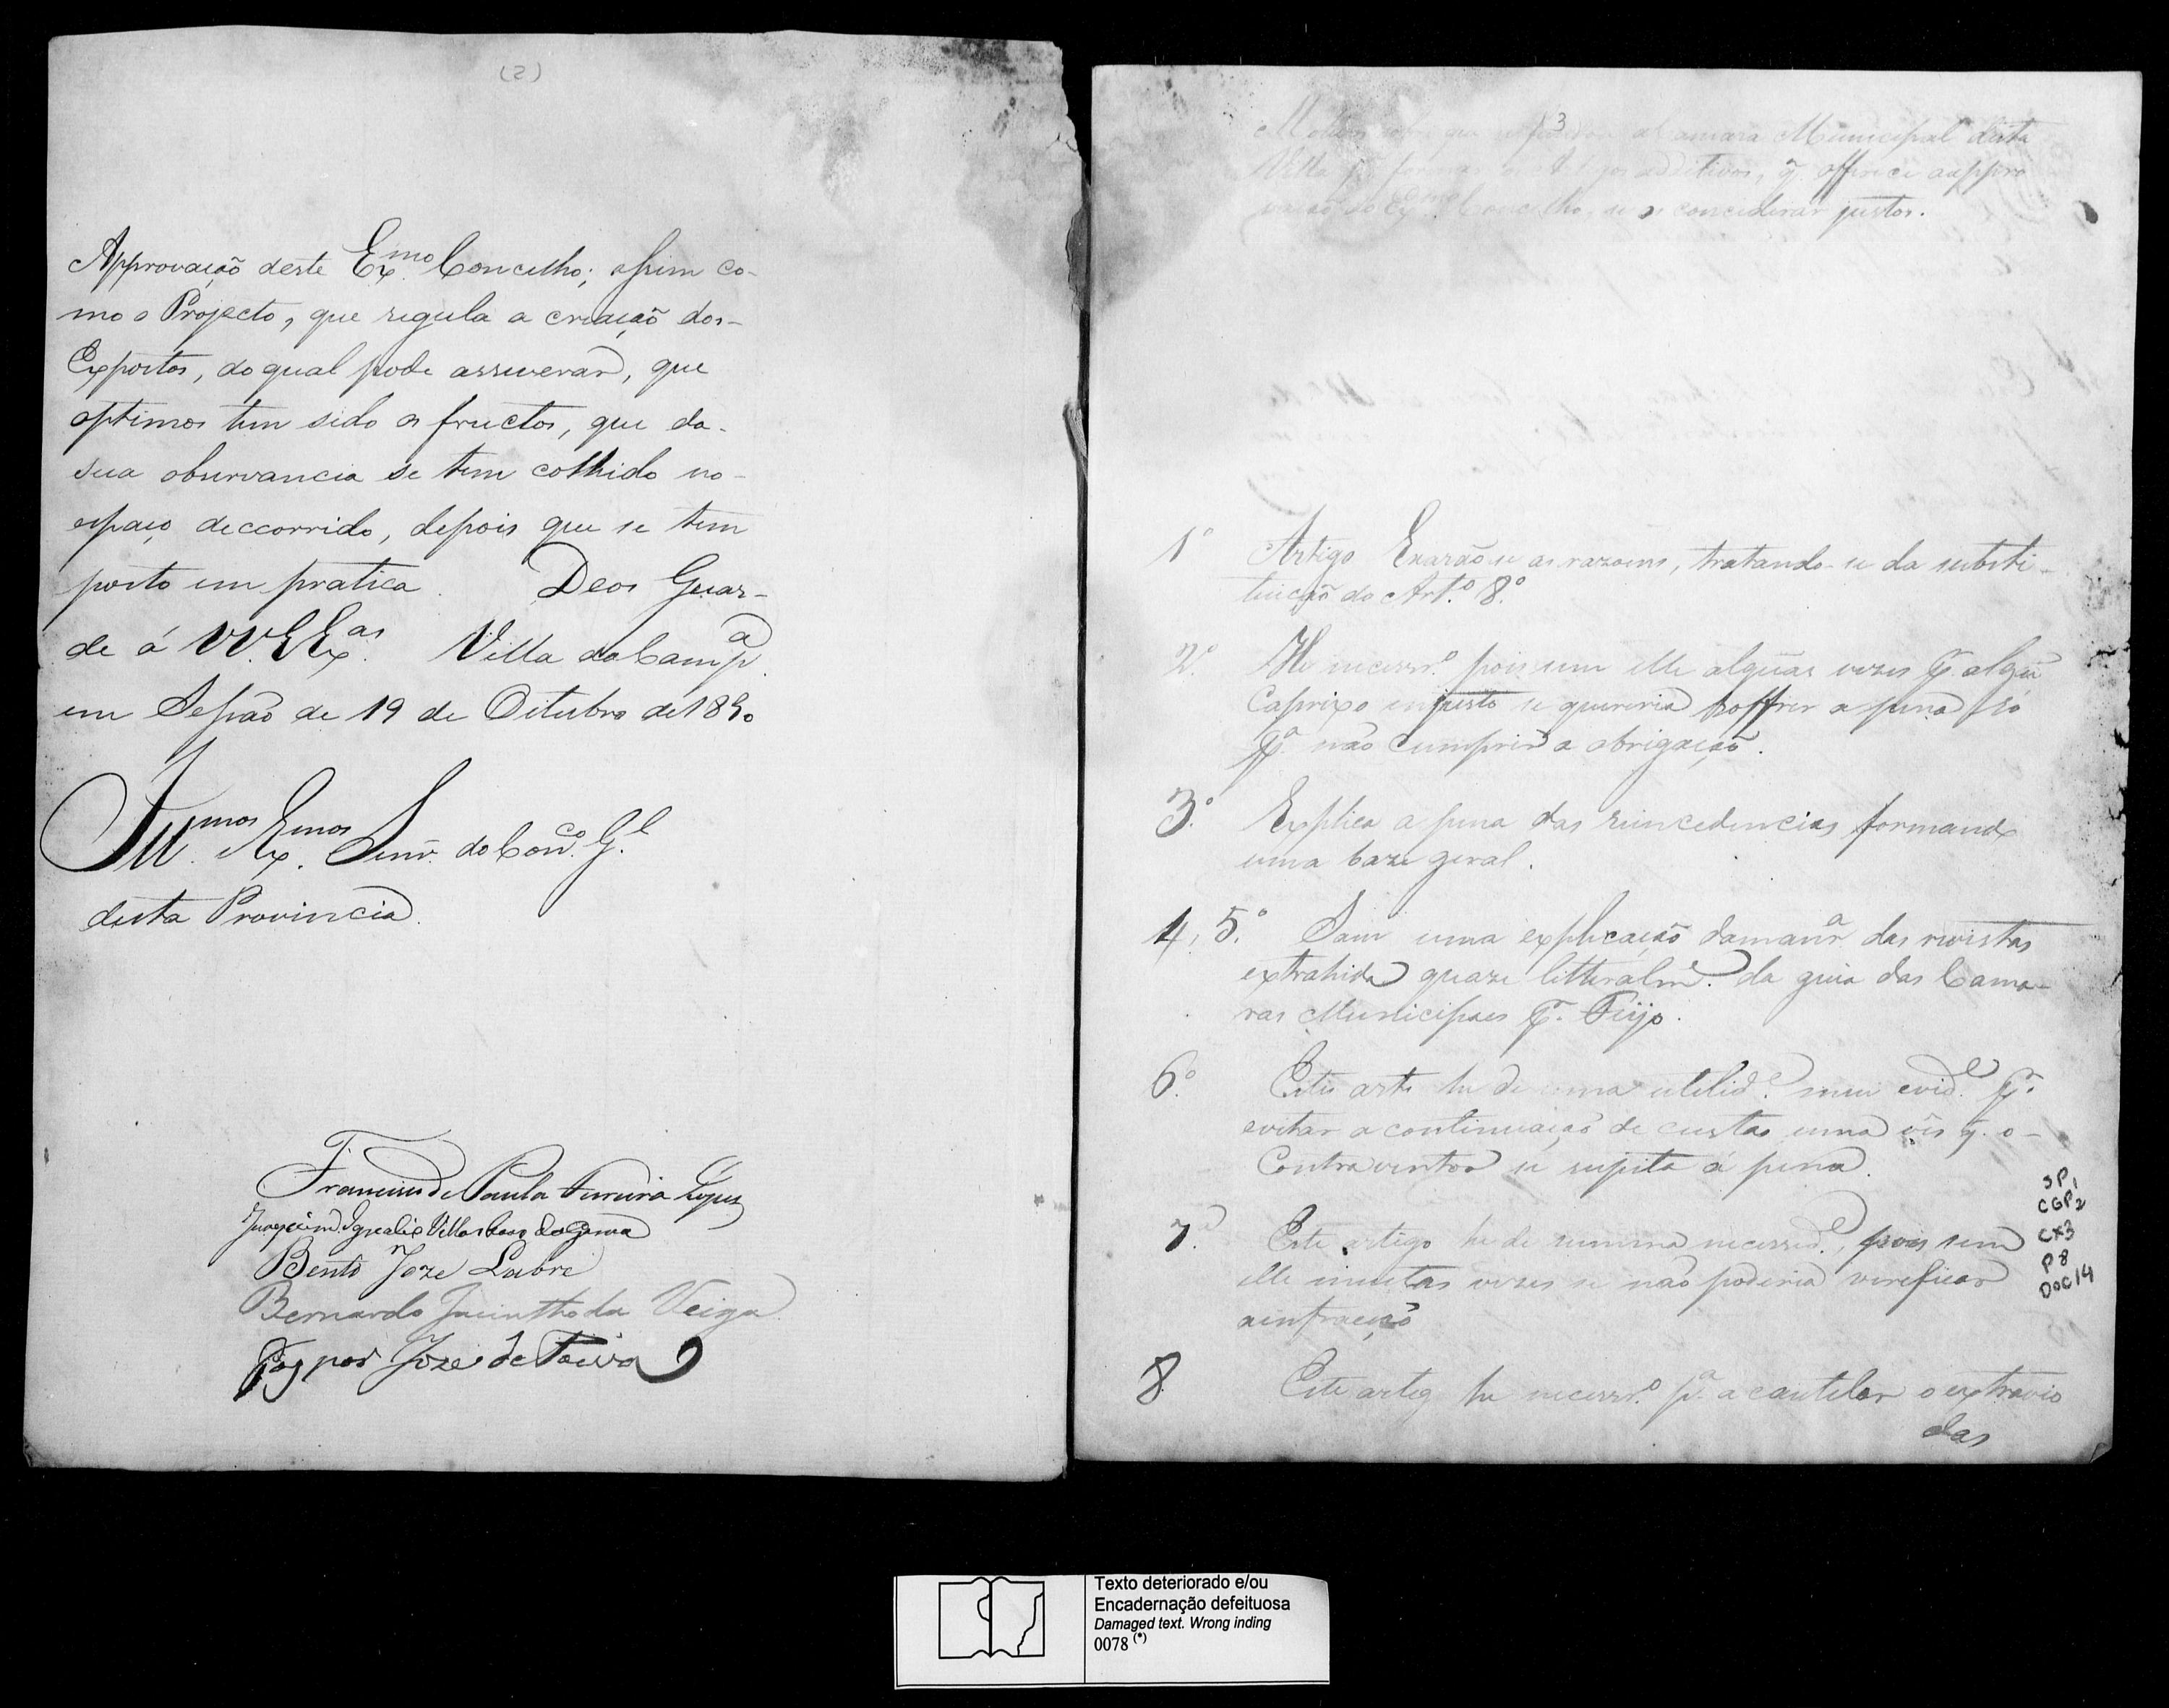 (2)
Approvação deste Ex.mo Concelho; assim co-
mo o Projecto, que regula a creação dos-
Expostos, do qual pode asseverar, que
optimos tem sido os fructos, que da-
sua observancia se tem colhido no-
espaço deccorrido, depois que se tem
posto em pratica. Deos Guar-
de á VV. EEx.as Villa da Camp.a
em Sessão de 19 de Oitubro de 1830
Ill.mos Ex.mos Senr. do Con.co G.l
desta Provincia.
Francisco de Paula Ferreira Lopes
Villas boas da Gama
Bento Joze Labre
Bernardo Jacintho da Veiga
Gaspar Joze de Paiva
3
Camara Municipal desta
Villa additivos, q. offerece a appro
vação do Ex.mo Concelho, se os concederar justos.
1º Artigo Exarão se as razoens, tratando-se da substi-
tuição do Art.º 8.º
2.º He necessr.º pois sem elle alguãs vezes p.r algũ
Caprixo injusto se quereria soffrer a pena só
p.a não cumprir a obrigação.
3.º Explica a pena das reincedencias formando
uma baze geral.
4, 5.º Sam uma explicação da man.ra das revistas
extrahida quaze litteralm.e da guia das Cama-
ras Municipaes p.r Feijo.
6.º Este arti he de uma utelid.e mui evid.e p.r
evitar a continuação de custas uma vês q. o-
Contraventor se sugeita á pena.
7.º Este artigo he de summa necessid.e, pois sem
elle muitas vezes se não poderia vereficar
a infracção
8 Este artig he necessr.º p.a a cautelar o extravio
das
SP1
CGP2
CX3
P8
DOC14
Texto deteriorado e/ou
Encadernação defeituosa
Damaged text. Wrong inding
0078 (*)